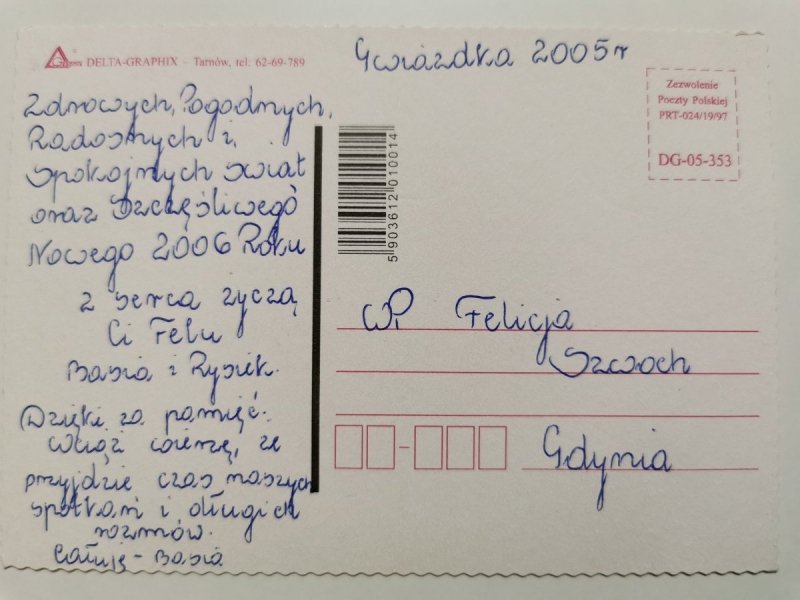 DELTA-GRAPHIX - Tarnów, tel. 62-69-789
Gwiazdka 2005 r
Zezwolenie
Poczty Polskiej
PRT-024/19/97
DG-05-353
Zdrowych, Pogodnych,
Radosnych i
spokojnych świat
oraz Szczęśliwego
Nowego 2006 Roku
z serca życzą
Ci Felu
Basia i Rysiek.
Dzięki za pamięć.
Wciąż wierzę, że
przyjdzie czas naszych
spotkań i długich
rozmów.
Całuję - Basia
5 903612 010014
WP Felicja
Szwoch
Gdynia